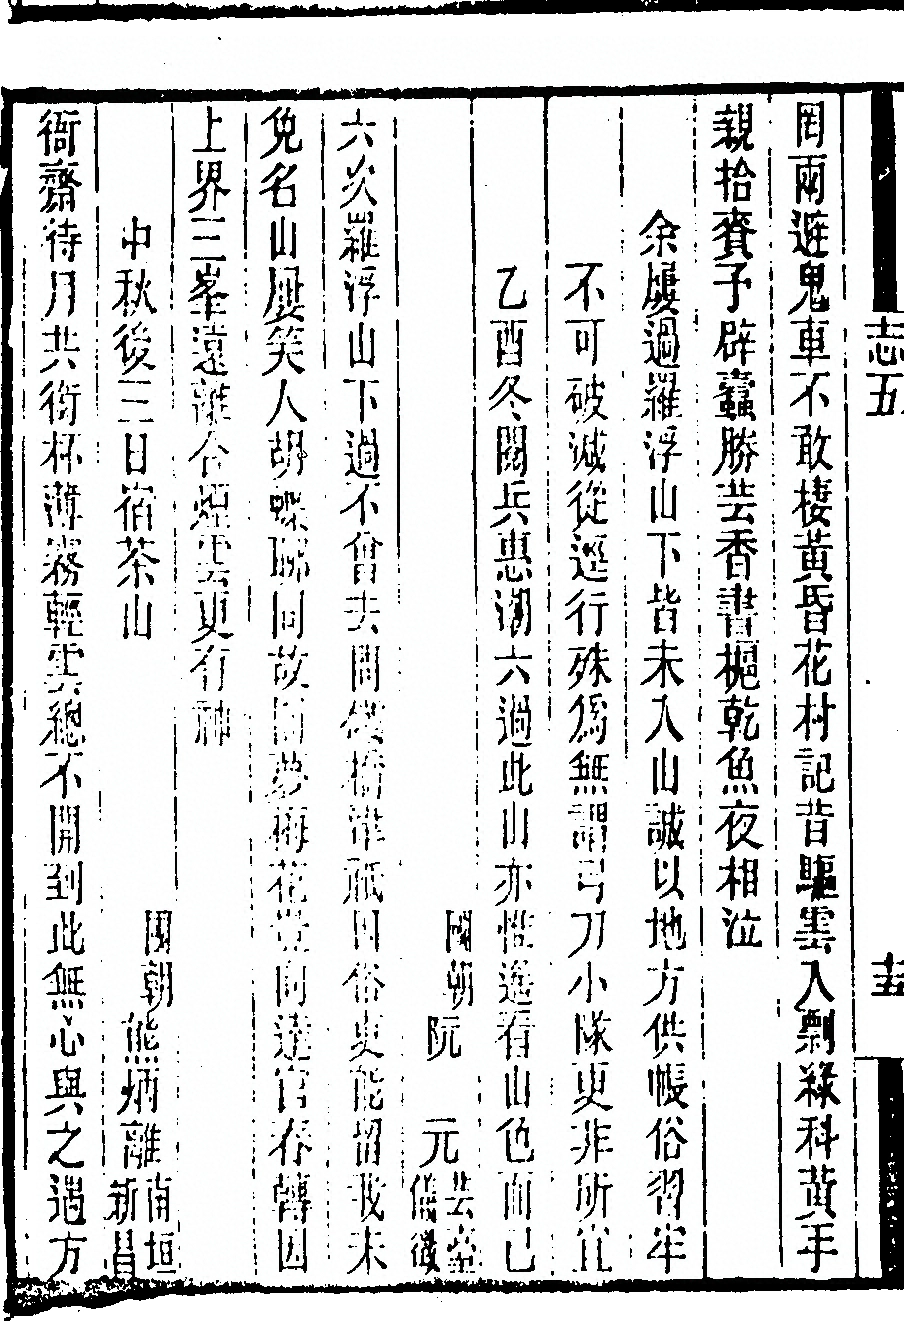 志五
十五
罔兩避鬼車不敢棲黃昏花村記昔驅雲入剽綠科黃手
親拾賚予辟蠹勝芸香書槴乾魚夜相泣
余屢過羅浮山下皆未入山誠以地方供帳俗習牢
不可破減從逕行殊爲無謂弓刀小隊更非所宜
乙酉冬閱兵惠潮六過此山亦惟遙看山色而已
國朝阮元芸臺儀徵
六次羅浮山下過不曾去問鐵橋津祇因俗吏能留我未
免名山屢笑人胡蝶聊同故園夢梅花豈向達官春轉因
上界三峯遠離合煙雲更有神
中秋後三日宿茶山
國朝熊炳離南垣新昌
衙齋待月共銜杯薄霧輕雲總不開到此無心與之遇方